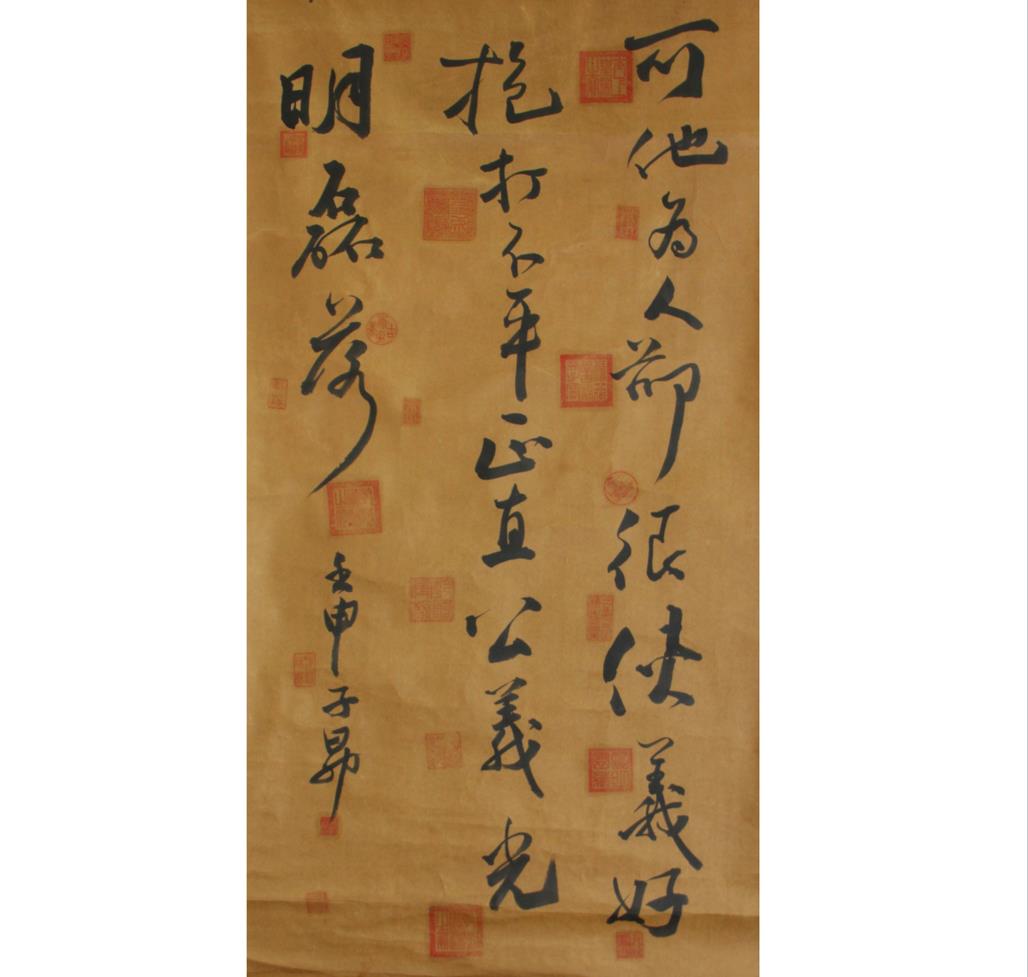 可他為人卻很俠義好
抱打不平正直公義光
明磊落
壬申子昂